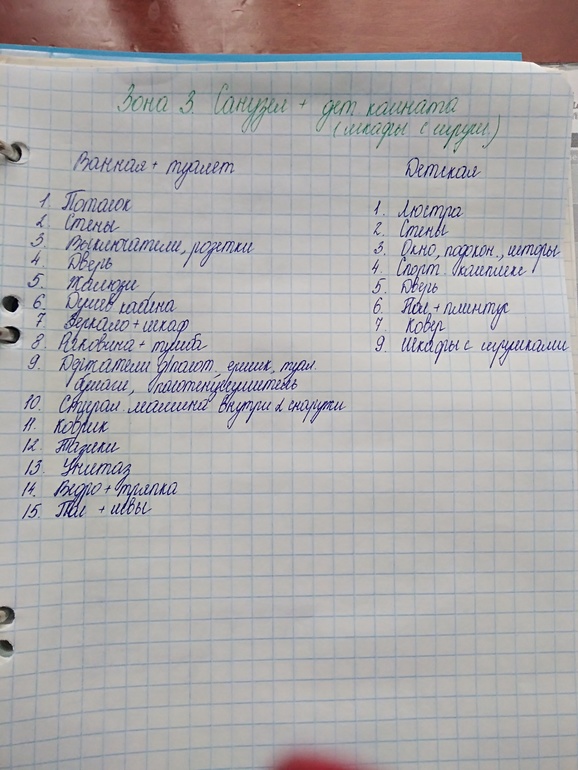 Зона 3. Санузел + дет комната
(шкафы с игруш.)
Ванная + туалет
1. Потолок
2. Стены
3 Выключатели, розетки
4 Дверь
5. Жалюзи
6 Душев кабина
7. Зеркало + шкаф
8. Раковина + тумба
9. Держатели д/полот, ершик, туал.
бумаги, полотенцесушитель
10. Стирал. машина внутри и снаружи
11. Коврик
12. Тазики
13. Унитаз
14. Ведро + тряпка
15. Пол + швы
Детская
1. Люстра
2. Стены
3. Окно, подокон., шторы
4. Спорт. комплекс
5. Дверь
6. Пол + плинтус
7 Ковер
9. Шкафы с игрушками